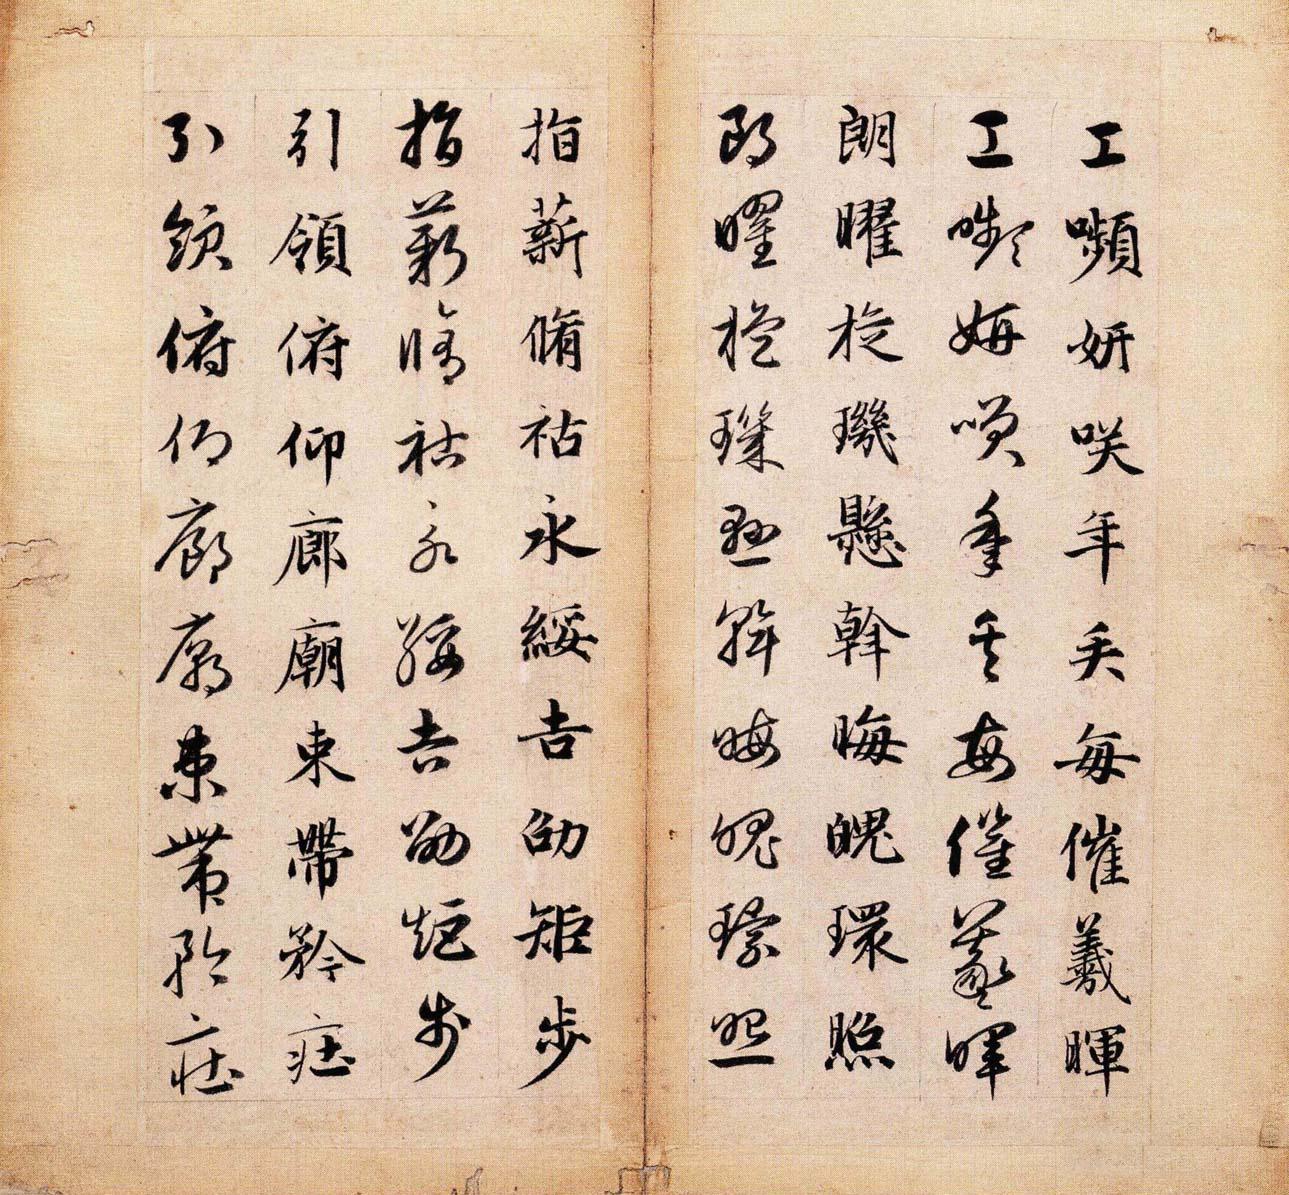 工嚬妍咲年矢每催羲暉
工嚬妍咲年矢每催羲暉
朗曜旋璣懸斡晦魄環照
朗曜旋璣懸斡晦魄環照
指薪脩祜永綏吉劭矩步
指薪脩祜永綏吉劭矩步
引領俯仰廊廟束帶矜莊
引領俯仰廊廟束帶矜莊